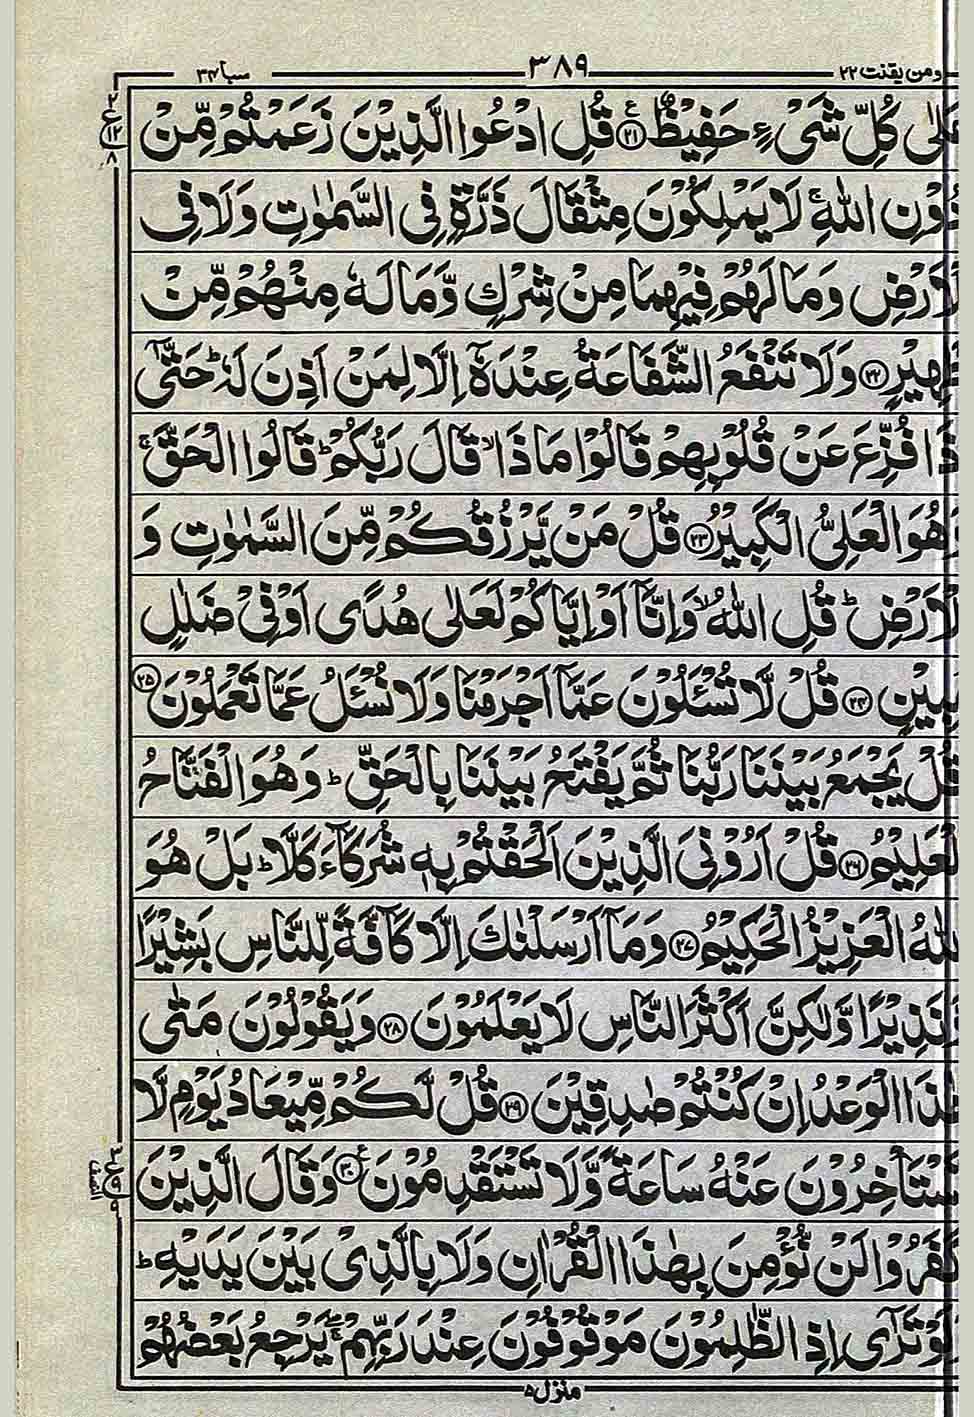 ومن يقنت ٢٢ ٣٨٩ سبا ٣٤
عَلٰى كُلِّ شَىْءٍ حَفِيْظٌ ۝٢١ قُلِ ادْعُوا الَّذِيْنَ زَعَمْتُمْ مِّنْ
دُوْنِ اللّٰهِ ۚ لَا يَمْلِكُوْنَ مِثْقَالَ ذَرَّةٍ فِى السَّمٰوٰتِ وَلَا فِى
الْاَرْضِ وَمَا لَهُمْ فِيْهِمَا مِنْ شِرْكٍ وَّمَا لَهٗ مِنْهُمْ مِّنْ
ظَهِيْرٍ ۝٢٢ وَلَا تَنْفَعُ الشَّفَاعَةُ عِنْدَهٗٓ اِلَّا لِمَنْ اَذِنَ لَهٗ ؕ حَتّٰٓى
اِذَا فُزِّعَ عَنْ قُلُوْبِهِمْ قَالُوْا مَاذَا ۙ قَالَ رَبُّكُمْ ؕ قَالُوا الْحَقَّ ۚ
وَهُوَ الْعَلِىُّ الْكَبِيْرُ ۝٢٣ قُلْ مَنْ يَّرْزُقُكُمْ مِّنَ السَّمٰوٰتِ وَ
الْاَرْضِ ؕ قُلِ اللّٰهُ ۙ وَاِنَّآ اَوْ اِيَّاكُمْ لَعَلٰى هُدًى اَوْ فِىْ ضَلٰلٍ
مُّبِيْنٍ ۝٢٤ قُلْ لَّا تُسْـَٔلُوْنَ عَمَّآ اَجْرَمْنَا وَلَا نُسْـَٔلُ عَمَّا تَعْمَلُوْنَ ۝٢٥
قُلْ يَجْمَعُ بَيْنَنَا رَبُّنَا ثُمَّ يَفْتَحُ بَيْنَنَا بِالْحَقِّ ؕ وَهُوَ الْفَتَّاحُ
الْعَلِيْمُ ۝٢٦ قُلْ اَرُوْنِىَ الَّذِيْنَ اَلْحَقْتُمْ بِهٖ شُرَكَآءَ كَلَّا ؕ بَلْ هُوَ
اللّٰهُ الْعَزِيْزُ الْحَكِيْمُ ۝٢٧ وَمَآ اَرْسَلْنٰكَ اِلَّا كَآفَّةً لِّلنَّاسِ بَشِيْرًا
وَّنَذِيْرًا وَّلٰكِنَّ اَكْثَرَ النَّاسِ لَا يَعْلَمُوْنَ ۝٢٨ وَيَقُوْلُوْنَ مَتٰى
هٰذَا الْوَعْدُ اِنْ كُنْتُمْ صٰدِقِيْنَ ۝٢٩ قُلْ لَّكُمْ مِّيْعَادُ يَوْمٍ لَّا
تَسْتَاْخِرُوْنَ عَنْهُ سَاعَةً وَّلَا تَسْتَقْدِمُوْنَ ۝٣٠ وَقَالَ الَّذِيْنَ
كَفَرُوْا لَنْ نُّؤْمِنَ بِهٰذَا الْقُرْاٰنِ وَلَا بِالَّذِىْ بَيْنَ يَدَيْهِ ؕ
وَلَوْ تَرٰٓى اِذِ الظّٰلِمُوْنَ مَوْقُوْفُوْنَ عِنْدَ رَبِّهِمْ ۖۚ يَرْجِعُ بَعْضُهُمْ
منزل ٥